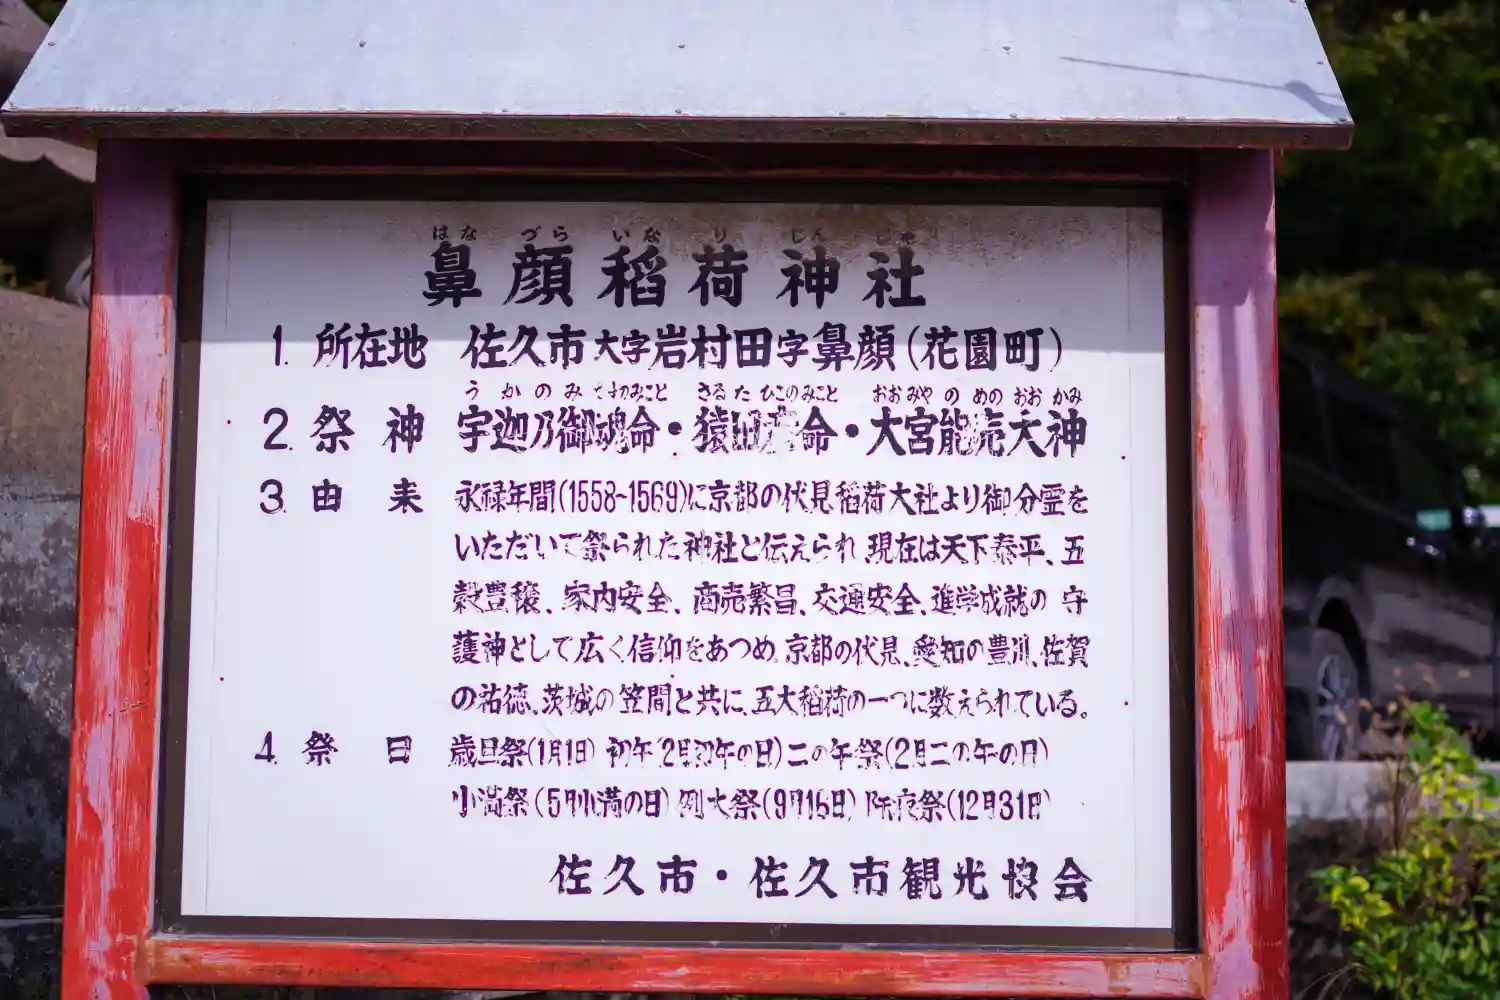 はな づら いな り じん じゃ
鼻顔稲荷神社
1. 所在地 佐久市大字岩村田字鼻顔(花園町)
うかのみたまのみこと さるたひこのみこと おおみやのめのおおかみ
2. 祭神 宇迦乃御魂命・猿田彦命・大宮能売大神
3. 由来 永禄年間(1558~1569)に京都の伏見稲荷大社より御分霊を
いただいて祭られた神社と伝えられ、現在は天下泰平、五
穀豊穣、家内安全、商売繁昌、交通安全、進学成就の守
護神として広く信仰をあつめ、京都の伏見、愛知の豊川、佐賀
の祐徳、茨城の笠間と共に、五大稲荷の一つに数えられている。
4. 祭日 歳旦祭(1月1日) 初午(2月初午の日)二の午祭(2月二の午の日)
小満祭(5月小満の日) 例大祭(9月15日) 除夜祭(12月31日)
佐久市・佐久市観光協会